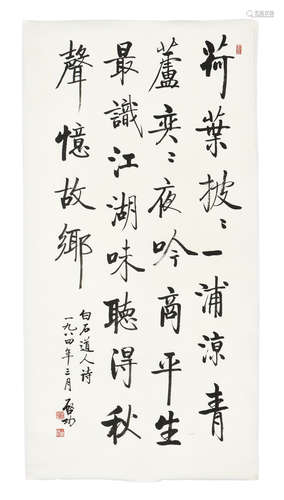 荷葉披〻一浦涼青
蘆奕〻夜吟商平生
最識江湖味聽得秋
聲憶故鄉
白石道人诗
一九八四年三月 启功